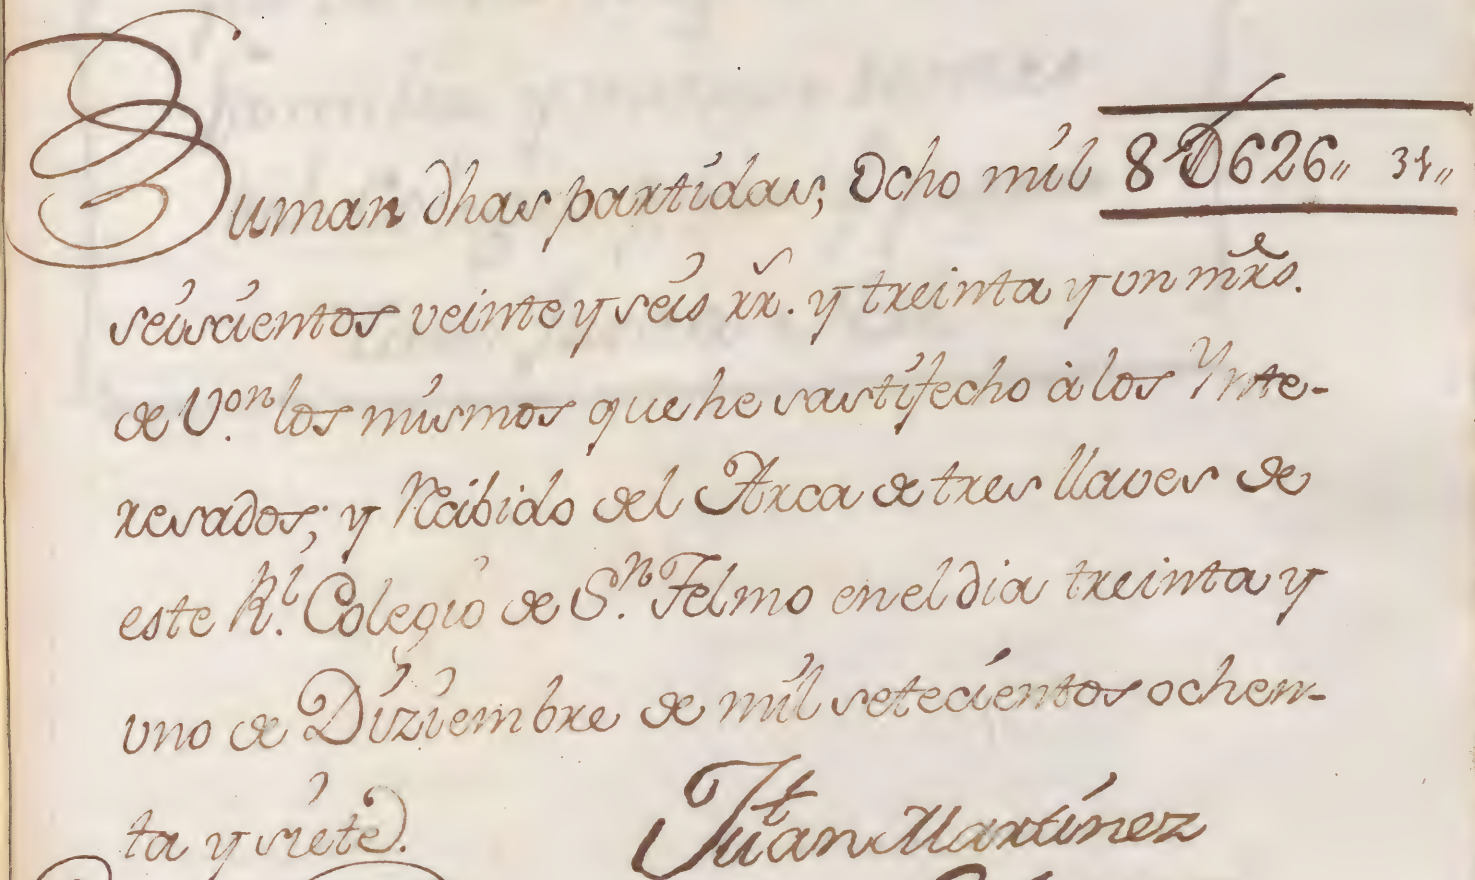 Suman dhas partidas, Ocho mil 8D626,, 31,,
seiscientos veinte y seis rr. y treinta y un mrs.
de Von. los mismos que he sastifecho à los Ynte-
resados; y Recibido del Arca de tres llaves de
este Rl. Colegio de Sn. Telmo en el dia treinta y
uno de Diziembre de mil setecientos ochen-
ta y siete.
Juan Martinez